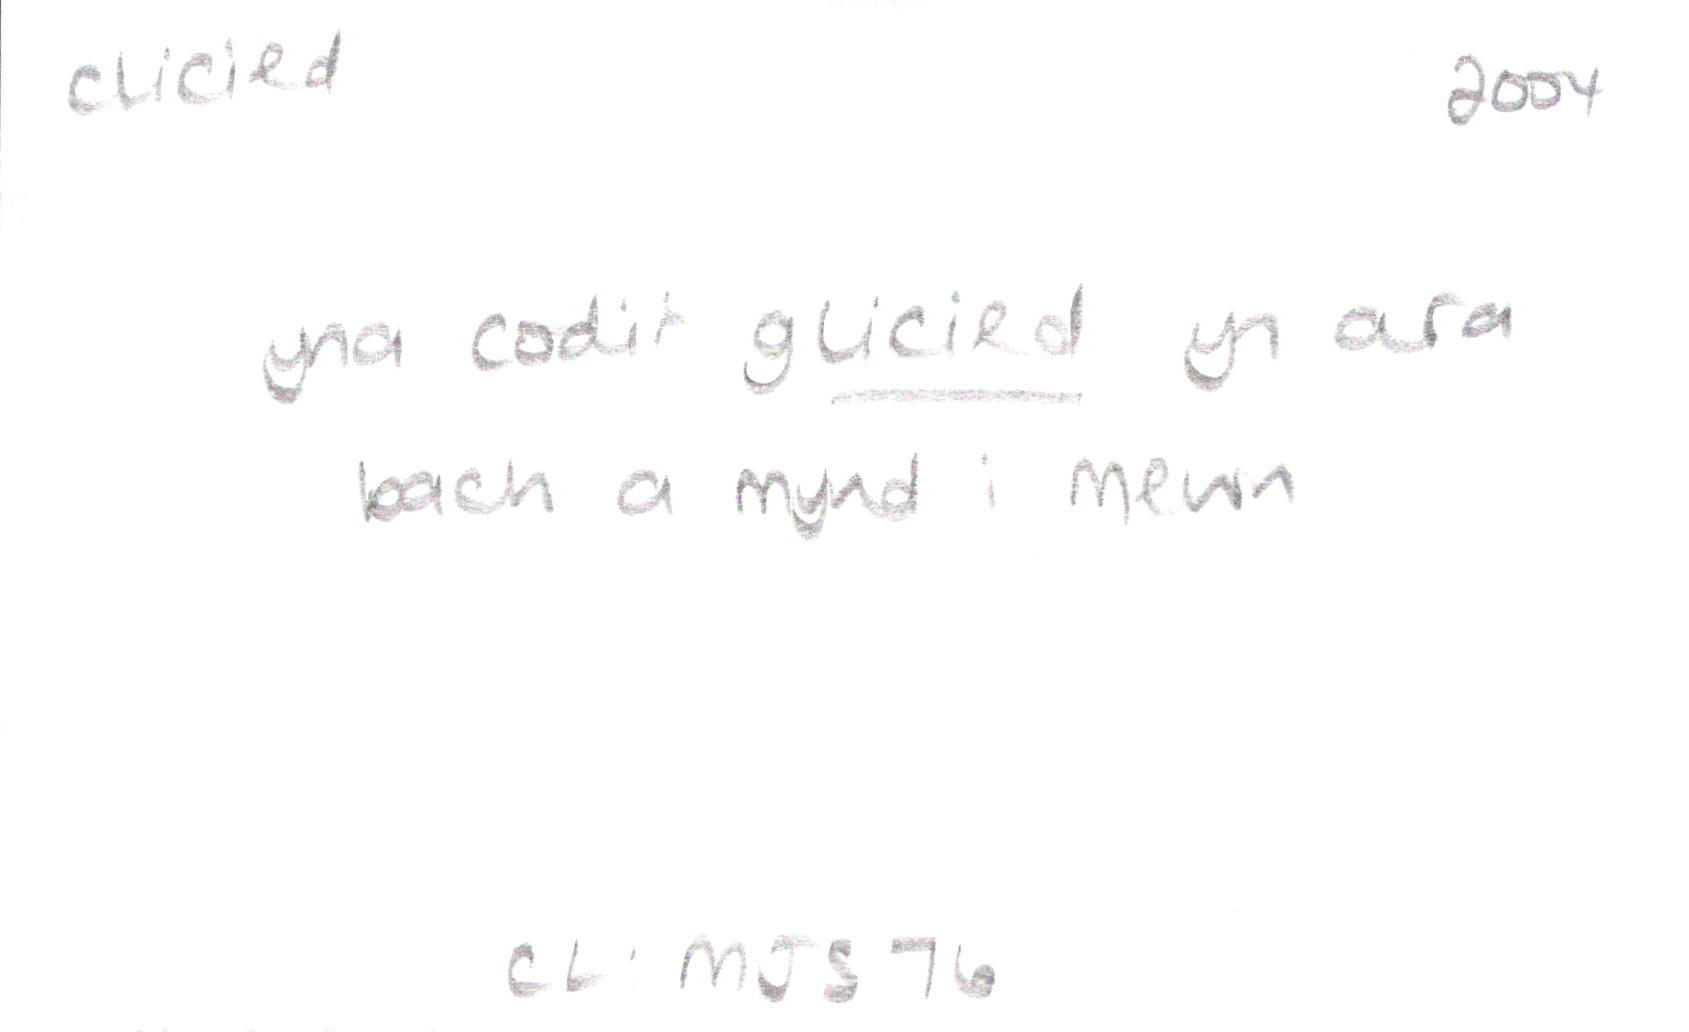 clicied 2004
yna codit glicied yn ara
bach a mynd i mewn
CL: MJS 76